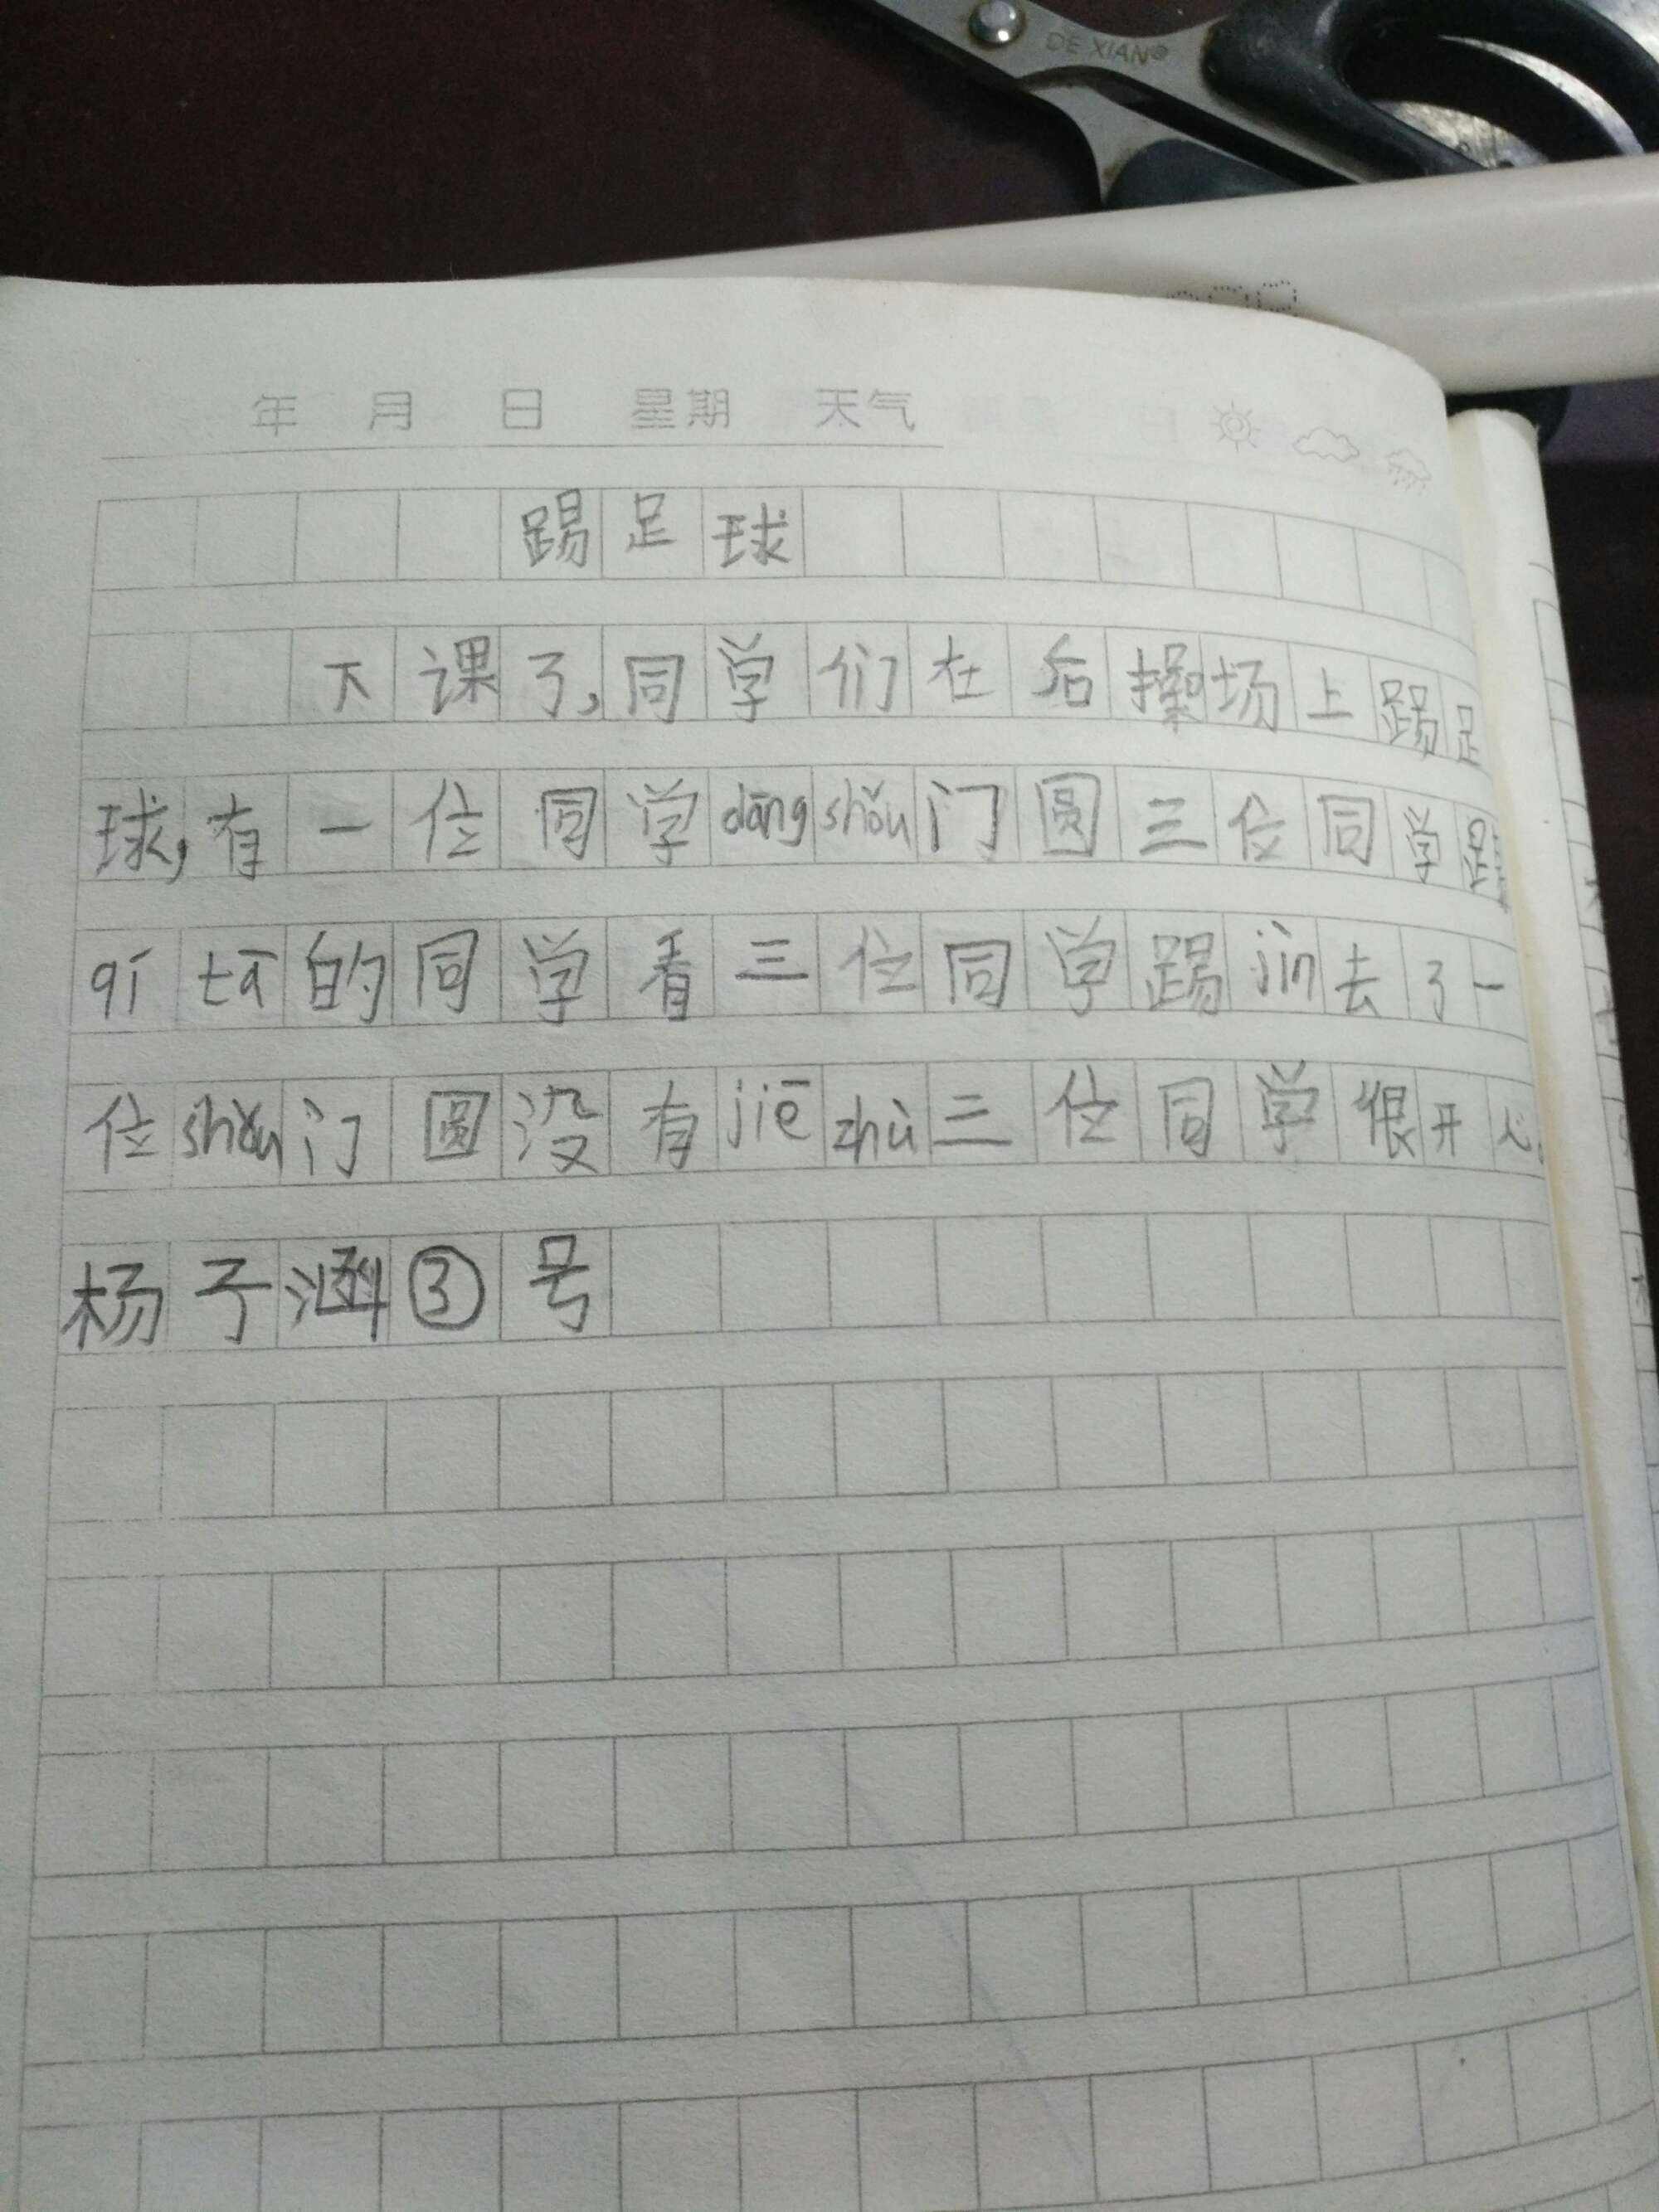 DE XIAN®
年 月 日 星期 天气
踢足球
下课了,同学们在后操场上踢足
球,有一位同学dāng shǒu门圆三位同学
qí tā的同学看三位同学踢jìn去了一
位shǒu门圆没有jiē zhù三位同学很开心。
杨子涵③号